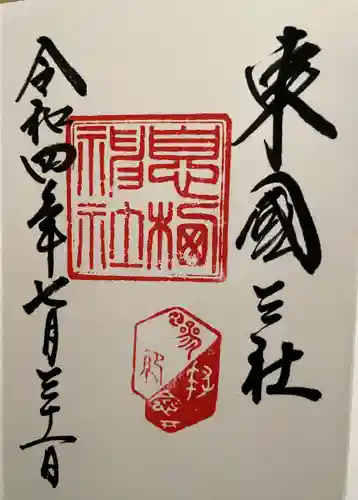 東國三社
息栖神社
令和四年七月三十一日